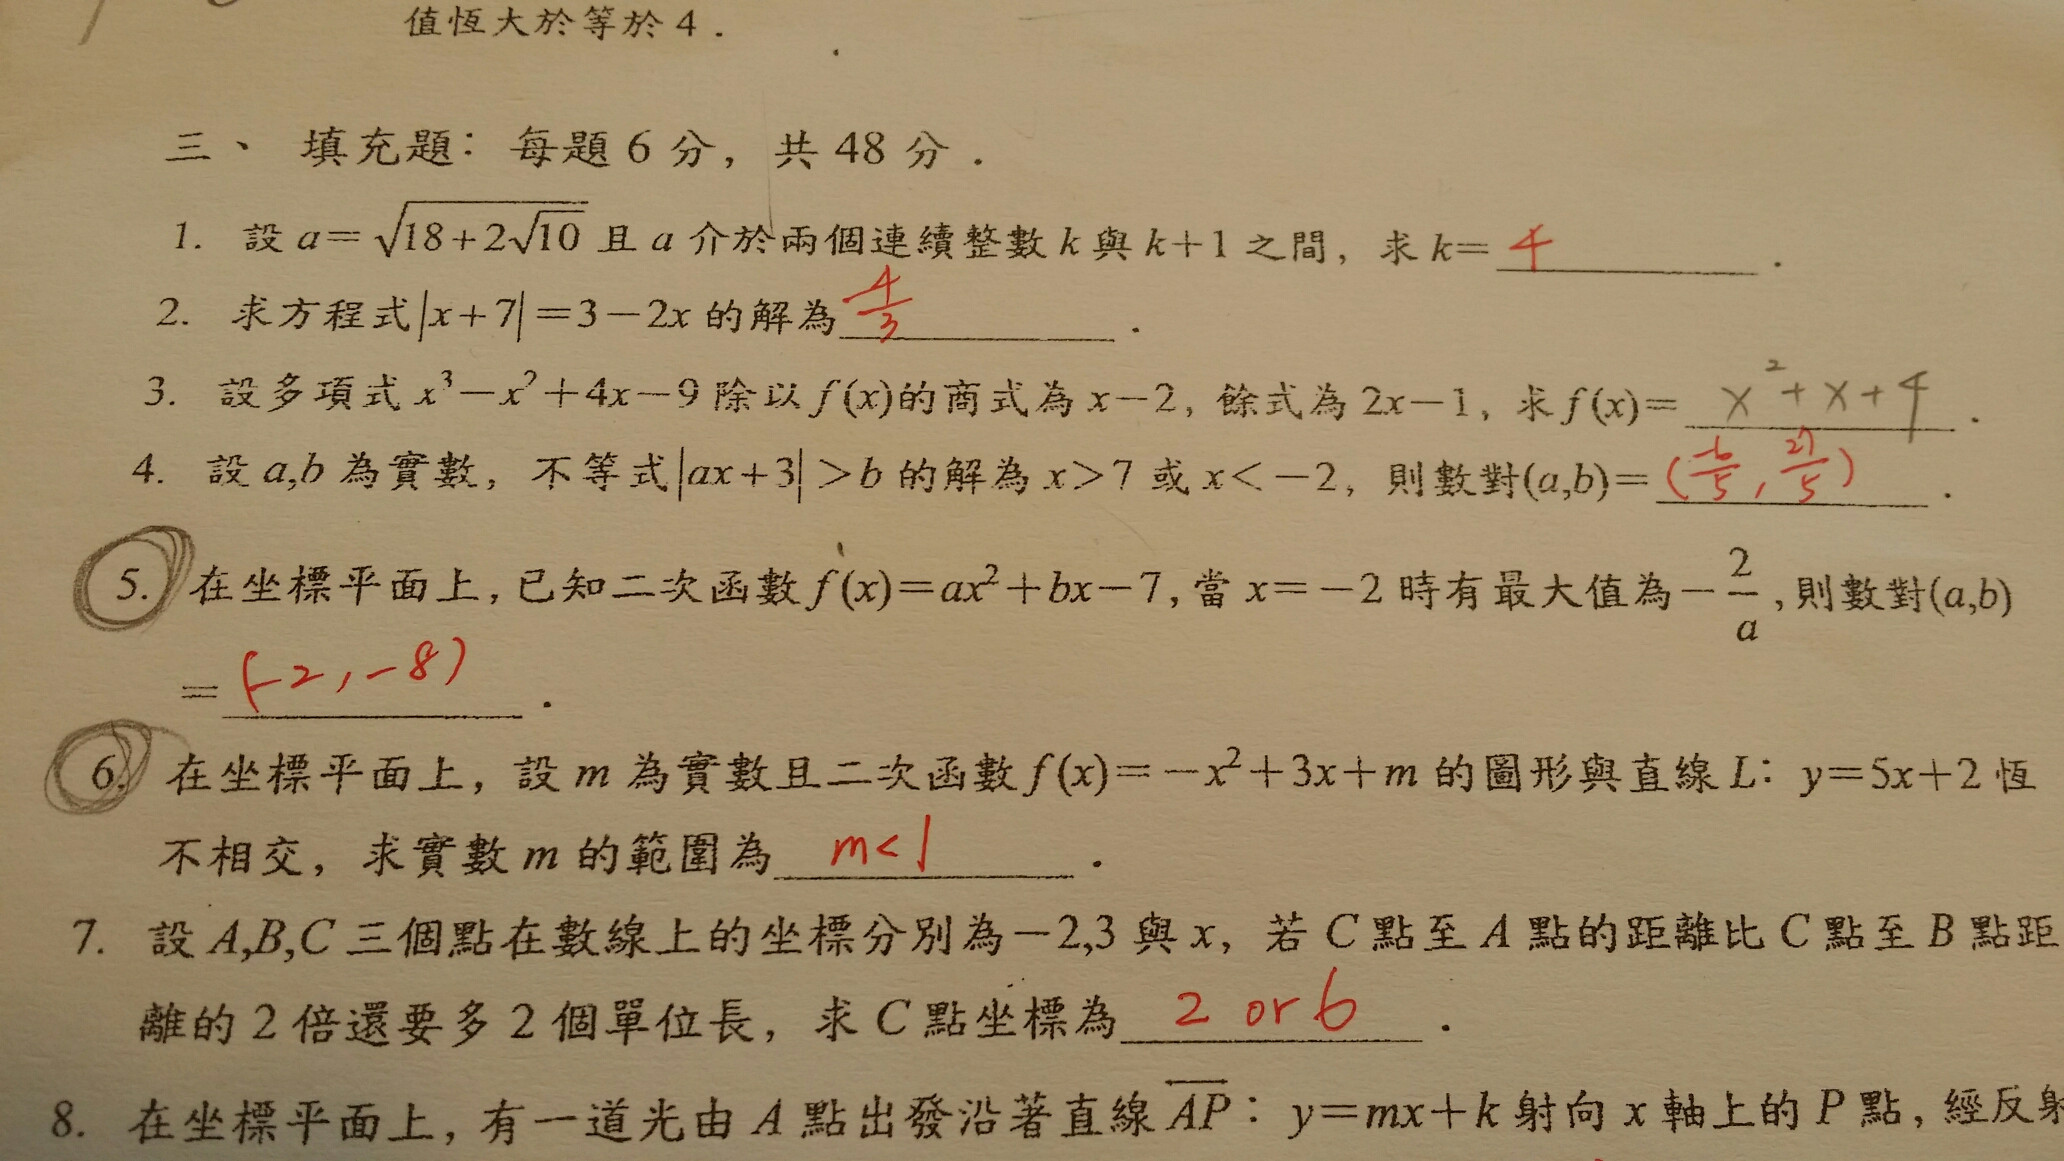 值恆大於等於 4．
三、 填充題：每題 6 分，共 48 分．
1. 設 a=√(18+2√10) 且 a 介於兩個連續整數 k 與 k+1 之間，求 k= 4 ．
2. 求方程式|x+7|=3−2x 的解為 −4/3 ．
3. 設多項式 x³−x²+4x−9 除以 f(x)的商式為 x−2，餘式為 2x−1，求 f(x)= x²+x+4 ．
4. 設 a,b 為實數，不等式|ax+3|>b 的解為 x>7 或 x<−2，則數對(a,b)= (−6/5, 27/5) ．
5. 在坐標平面上，已知二次函數 f(x)=ax²+bx−7，當 x=−2 時有最大值為−2/a，則數對(a,b)
= (−2, −8) ．
6. 在坐標平面上，設 m 為實數且二次函數 f(x)=−x²+3x+m 的圖形與直線 L：y=5x+2 恆
不相交，求實數 m 的範圍為 m<1 ．
7. 設 A,B,C 三個點在數線上的坐標分別為−2,3 與 x，若 C 點至 A 點的距離比 C 點至 B 點距
離的 2 倍還要多 2 個單位長，求 C 點坐標為 2 or 6 ．
8. 在坐標平面上，有一道光由 A 點出發沿著直線 AP：y=mx+k 射向 x 軸上的 P 點，經反射